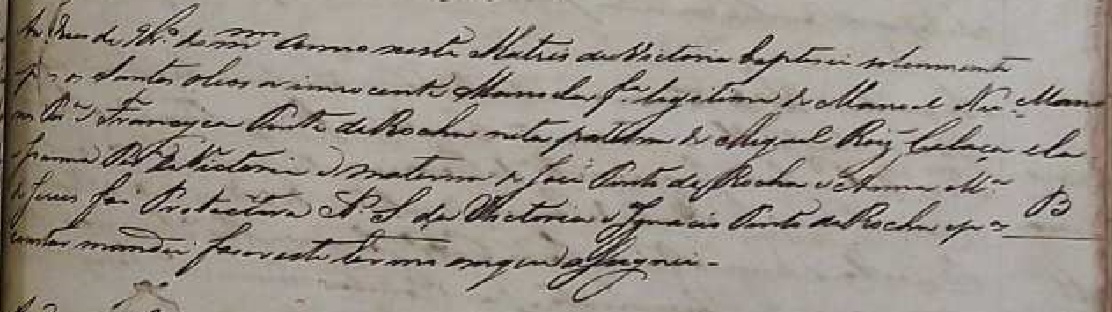 de 9br.o do mm.o Anno nesta Matris da Victoria baptisei solemnente
p. os Santos oleos a innocente Manoela f.a legitima de Manoel Manoe
Fran.ca Pinto da Rocha neta paterna de Miguel Roiz Calaça ela
da Victoria e materna de José Pinto da Rocha e Anna M.a
de Jesus foi Protectora N. S. da Victoria e Ignacio Pinto da Rocha e p.a B
constar mandei faser este termo em que assignei.